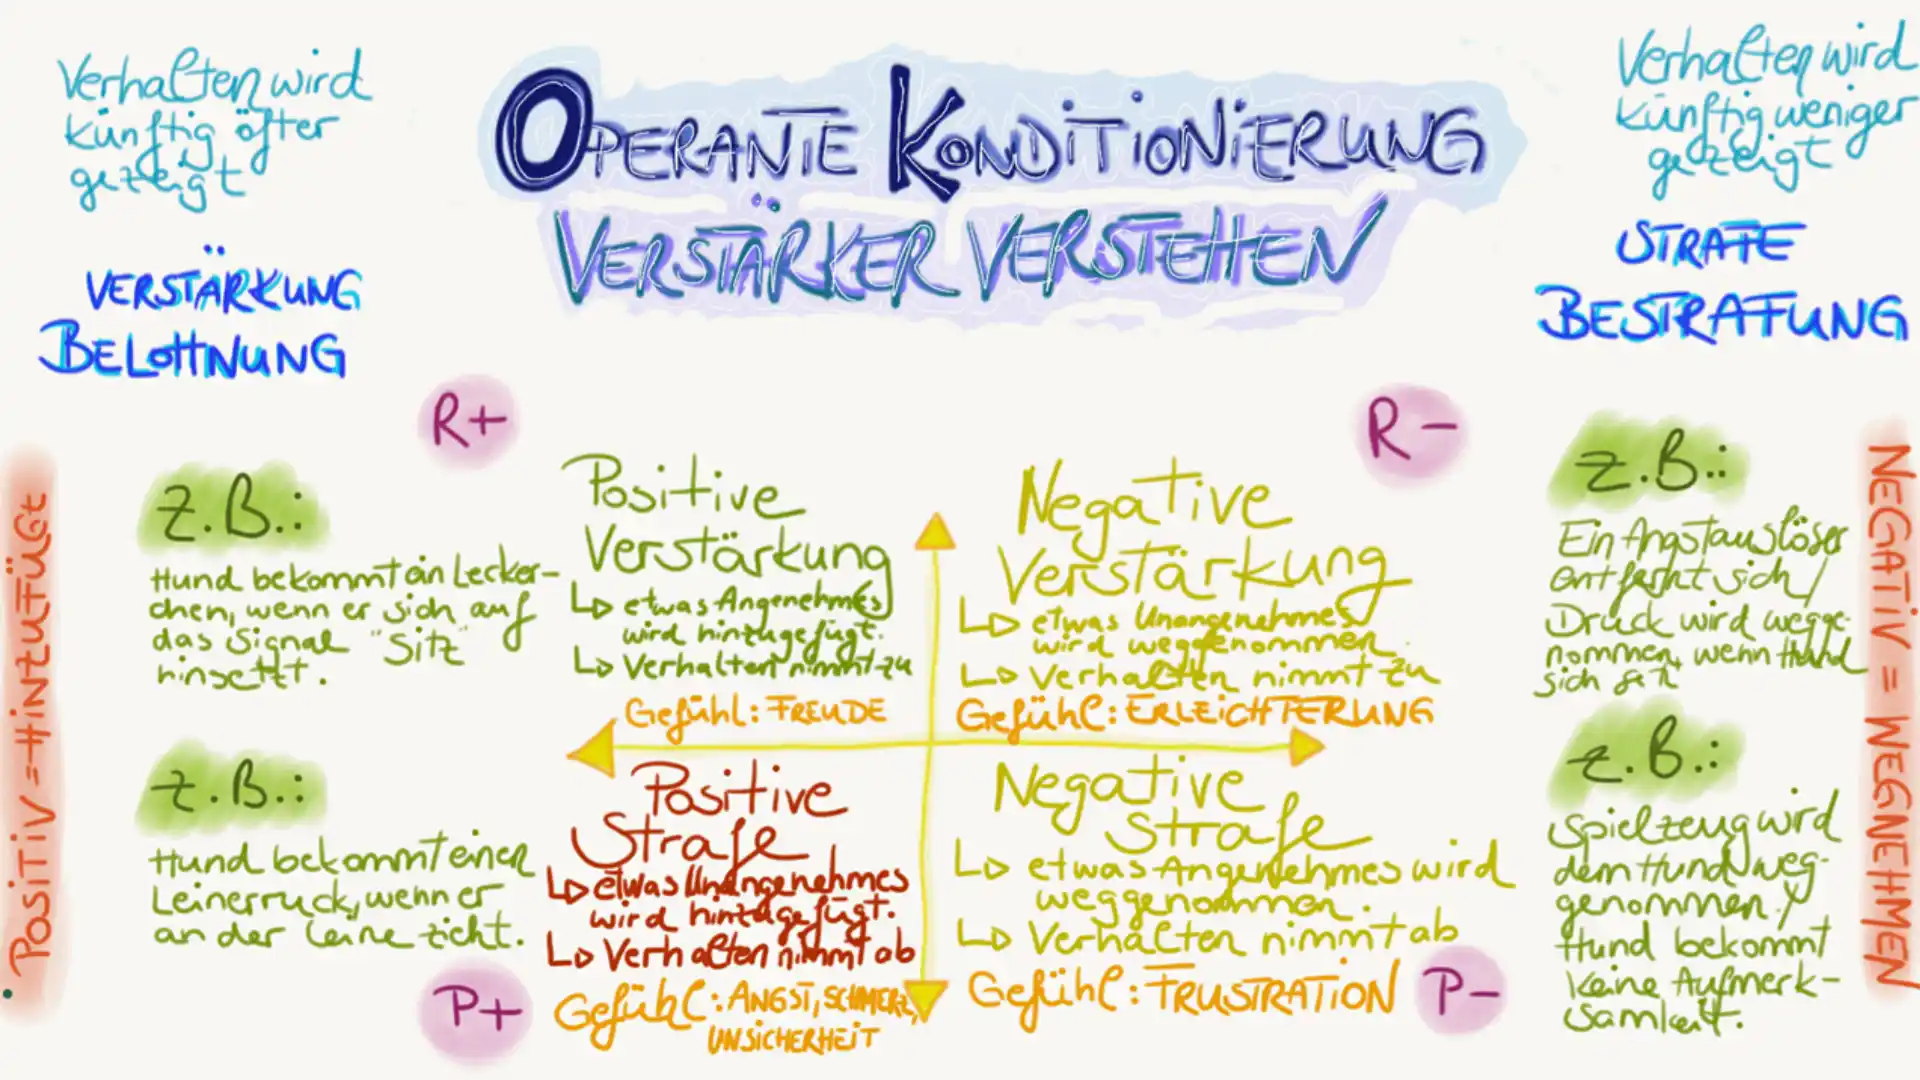 Verhalten wird
künftig öfter
gezeigt
VERSTÄRKUNG
BELOHNUNG
OPERANTE KONDITIONIERUNG
VERSTÄRKER VERSTEHEN
Verhalten wird
künftig weniger
gezeigt
STRAFE
BESTRAFUNG
POSITIV = HINZUFÜGT
R+
z.B.:
Hund bekommt ein Lecker-
chen, wenn er sich auf
das Signal "Sitz"
hinsetzt.
Positive
Verstärkung
etwas Angenehmes
wird hinzugefügt.
Verhalten nimmt zu
Gefühl: FREUDE
R-
Negative
Verstärkung
etwas Unangenehmes
wird weggenommen.
Verhalten nimmt zu
Gefühl: ERLEICHTERUNG
z.B.:
Ein Angstauslöser
entfernt sich /
Druck wird wegge-
nommen, wenn Hund
sich
NEGATIV = WEGNEHMEN
z.B.:
Hund bekommt einen
Leinenruck, wenn er
an der Leine zieht.
P+
Positive
Strafe
etwas Unangenehmes
wird hinzugefügt.
Verhalten nimmt ab
Gefühl: ANGST, SCHMERZ,
UNSICHERHEIT
Negative
Strafe
etwas Angenehmes wird
weggenommen.
Verhalten nimmt ab
Gefühl: FRUSTRATION
P-
z.B.:
Spielzeug wird
dem Hund weg-
genommen /
Hund bekommt
keine Aufmerk-
samkeit.